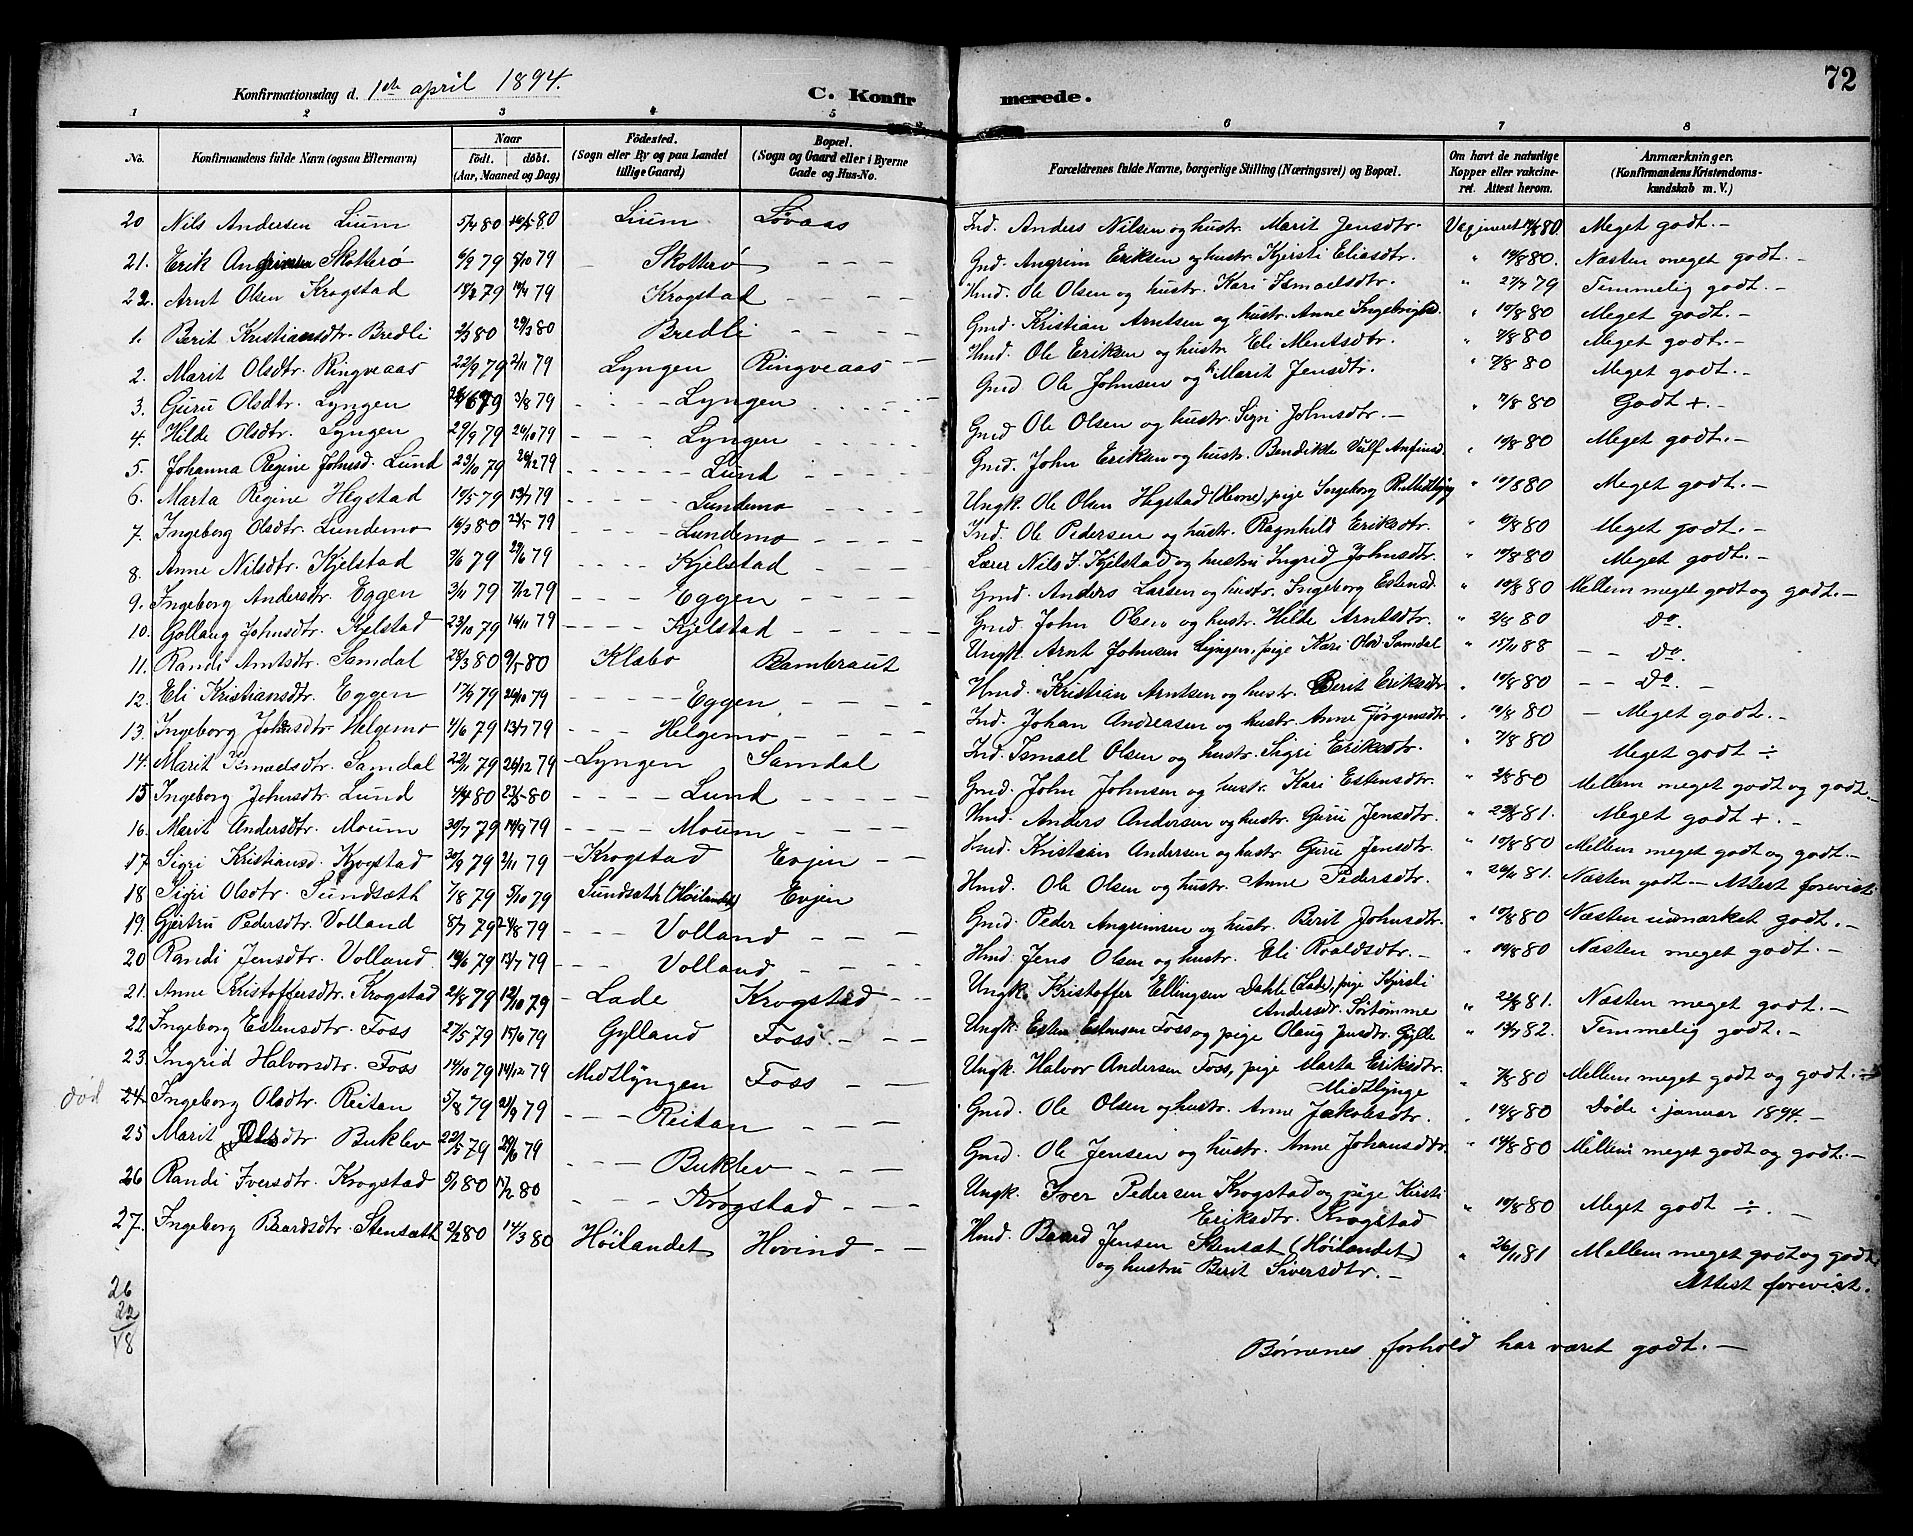 72
Konfirmationsdag d. 1ste april 1894.
C. Konfirmerede.
1 2 3 4 5 6 7 8
No. Konfirmandens fulde Navn (ogsaa Efternavn) Naar født. døbt. (Aar, Maaned og Dag) Fødested. (Sogn eller By og paa Landet tillige Gaard) Bopæl. (Sogn og Gaard eller i Byerne Gade og Hus-No. Forældrenes fulde Navne, borgerlige Stilling (Næringsvei) og Bopæl. Om havt de naturlige Kopper eller vakcineret. Attest herom. Anmærkninger. (Konfirmandens Kristendomskundskab m. V.)
20 Nils Andersen Lium 5/4 80 80 Lium Løvaas Ind. Anders Nilsen og hustr. Marit Jensdtr. 80. Meget godt. –
21. Erik Skotterø 6/9 79 5/10 79 – Skotterø – – – Gmd. Angrim Eriksen og hustr. Kjersti Eliasdtr. " 10/8 80. Næsten meget godt. –
22. Arnt Olsen Krogstad 18/2 79 14/4 79 – Krogstad – – – Hmd. Ole Olsen og hustr. Kari Ismaelsdtr. " 27/7 79 Temmelig godt. –
1. Berit Kristiansdtr. Bredli 2/3 80 29/3 80 Bredli – – – – Gmd. Kristian Arntsen og hustr. Anne " 10/8 80 Meget godt. –
2. Marit Olsdtr. Ringveaas 22/9 79 2/11 79 Lyngen Ringveaas Hmd. Ole Eriksen og hustr. Eli Mentsdtr. " 7/8 80 Meget godt. –
3. Guru Olsdtr. Lyngen 79 3/8 79 – Lyngen Gmd Ole Johnsen og h Marit Jensdtr. " 7/8 80 Meget godt. –
4. Hilde Olsdtr. Lyngen 29/9 79 26/10 79 – – – Lyngen Gmd Ole Olsen og hustr. Sigri Johnsdtr. – " 7/8 80 Godt +. –
5. Johanna Regine Johnsd. Lund 23/10 79 26/12 79 – – – – – Lund Gmd. John Eriksen og hustr. Bendikke " 10/8 80 Meget godt. –
6. Marta Regine Hegstad 19/5 79 13/7 79 – – – – Lundemo Ungk. Ole Olsen Hegstad pige Ingeborg " 10/8 80 Meget godt. –
7. Ingeborg Olsdtr. Lundemo 16/3 80 79 – – – – Lundemo – – – – Ind. Ole Pedersen og hustr. Ragnhild Eriksdtr. " 80 Meget godt. –
8. Anne Nilsdtr. Kjelstad 3/6 79 29/6 79 – – – – Kjelstad – – – – Lærer Nils J. Kjelstad og hustru Ingrid Johnsdtr. " 10/8 80 Meget godt. –
9. Ingeborg Andersdtr. Eggen 2/11 79 7/12 79 – – – Eggen – – – – Gmd. Anders Larsen og hustr. Ingeborg Estensd. " 10/8 80 Mellem meget godt og godt. –
10. Gollaug Johnsdtr. Kjelstad 23/10 79 16/11 79 – – – – Kjelstad – – – – Gmd. John Olsen og hustr. Hilde Arntsdtr. " 2/8 80 Do.
11. Randi Arntsdtr. Samdal 28/3 80 9/5 80 Klæbo Rambraut Ungk. Arnt Johnsen Lyngen, pige Kari Olsd. Samdal " 15/11 88 – – Do.
12. Eli Kristiansdtr. Eggen 17/9 79 26/10 79 – – – – Eggen – – – – Hmd. Kristian Arntsen og hustr. Berit Eriksdtr " 10/8 80 – – Do. –
13. Ingeborg Helgemo 4/6 79 13/7 79 – – – Helgemo – – – – Ind. Johan Andreasen og hustr. Anne Jørgensdtr " 10/8 80 – Meget godt. –
14. Marit Ismaelsdtr. Samdal 22/11 79 26/12 79 – Lyngen Samdal Ind. Ismael Olsen og hustr. Sigri Eriksdtr. " 7/8 80 Meget godt ÷
15 Ingeborg Johnsdtr. Lund 4/4 80 23/5 80 – – – – Lund – – – – – Gmd. John Johnsen og hustr. Kari Estensdtr. " 2/8 80 Mellem meget godt og godt. –
16. Marit Andersdtr. Moum 30/7 79 14/9 79 – – – – Moum – – – – Hmd. Anders Andersen og hustr. Guru Jensdtr. " 81. Meget godt +. –
17 Sigri Kristiansd. Krogstad 30/9 79 2/11 79 – Krogstad Evjen – – Hmd. Kristian Andersen og hustr Guru Jensdtr. " 10/8 80 Mellem meget godt og godt. –
18 Sigri Olsdtr. Sundsæth 7/8 79 5/10 79 – Sundsæth (Høilandet) Evjen Hmd. Ole Olsen og hustr. Anne Pedersdtr. " 26/11 81. Næsten godt – Attest forevist
19. Gjertru Pedersdtr. Volland 8/7 79 24/8 79 – – – Volland – – – Gmd. Peder Angrimsen og hustr. Berit Johnsdtr. " 10/8 80 Næsten udmærket godt. –
20 Randi Jensdtr. Volland 79 13/7 79 – – – Volland – – – – Hmd. Jens Olsen og hustr. Eli Roaldsdtr. " 10/8 80 Næsten meget godt. –
21. Anne Kristoffersdtr. Krogstad 21/8 79 12/10 79 – Lade Krogstad – – Ungk. Kristoffer Ellingsen Dahle (Lade), pige Kjersti
Andersdtr. Sørtømme " 22/8 81. Næsten meget godt. –
22 Ingeborg Estensdtr. Foss 27/5 79 15/6 79 Gylland Foss – – – Ungk. Esten Estensen Foss og pige Oleug Jensdtr. Gylle " 82. Temmelig godt. –
23. Ingrid Halvorsdtr. Foss 14/10 79 14/12 79 Midtlyngen Foss – – Ungk. Halvor Andersen Foss, pige Marta Eriksdtr.
Midtlynge " 7/8 80 Mellem meget godt og godt. –
død 24 Ingeborg Olsdtr. Reitan 5/8 79 21/9 79 – – – Reitan – – – Gmd. Ole Olsen og hustr. Anne Jakobsdtr. " 10/8 80 Døde i januar 1894. –
25 Marit Olsdtr Buklev 22/5 79 29/6 79 – – – Buklev – – – Gmd. Ole Jensen og hustr. Anne Johansdtr. " 14/8 80 Mellem meget godt og godt. –
26 Randi Iversdtr. Krogstad 5/1 80 80 – – – Krogstad – – Ungk. Iver Pedersen Krogstad og pige Kirsti
Eriksdtr. Krogstad " 10/8 80 Meget godt ÷. –
27. Ingeborg Baardsdtr. Stensæth 2/2 80 14/3 80 Høilandet Hovind – – Hmd. Baard Jensen Stensæt (Høilandet)
og hustru Berit Siversdtr. – " 26/11 81 Mellem meget godt og godt
Attest forevist.
26
22
48
Børnenes forhold har været godt. –